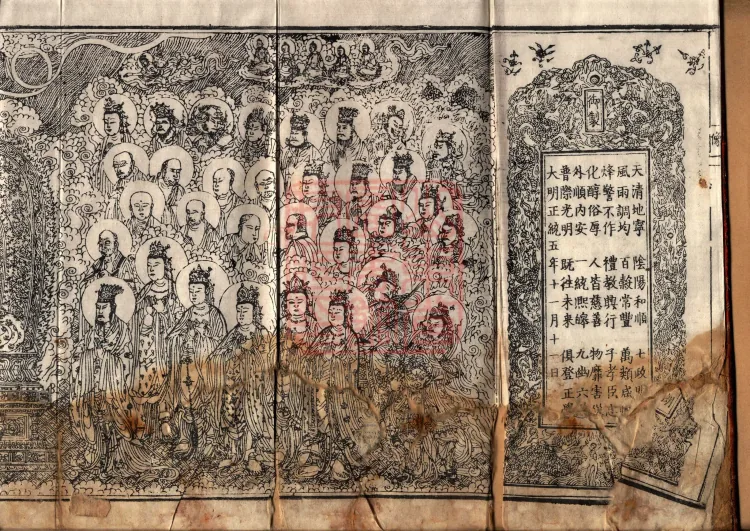 御製
天清地寧 陰陽和順 七政明
風雨調均 百穀常豐 萬類咸
烽警不作 禮教興行 子孝臣
化醇俗厚 人皆慈善 物靡害
外順內安 一統熙皞 九幽六
普際光明 既往未來 俱登正
大明正統五年十一月十一日